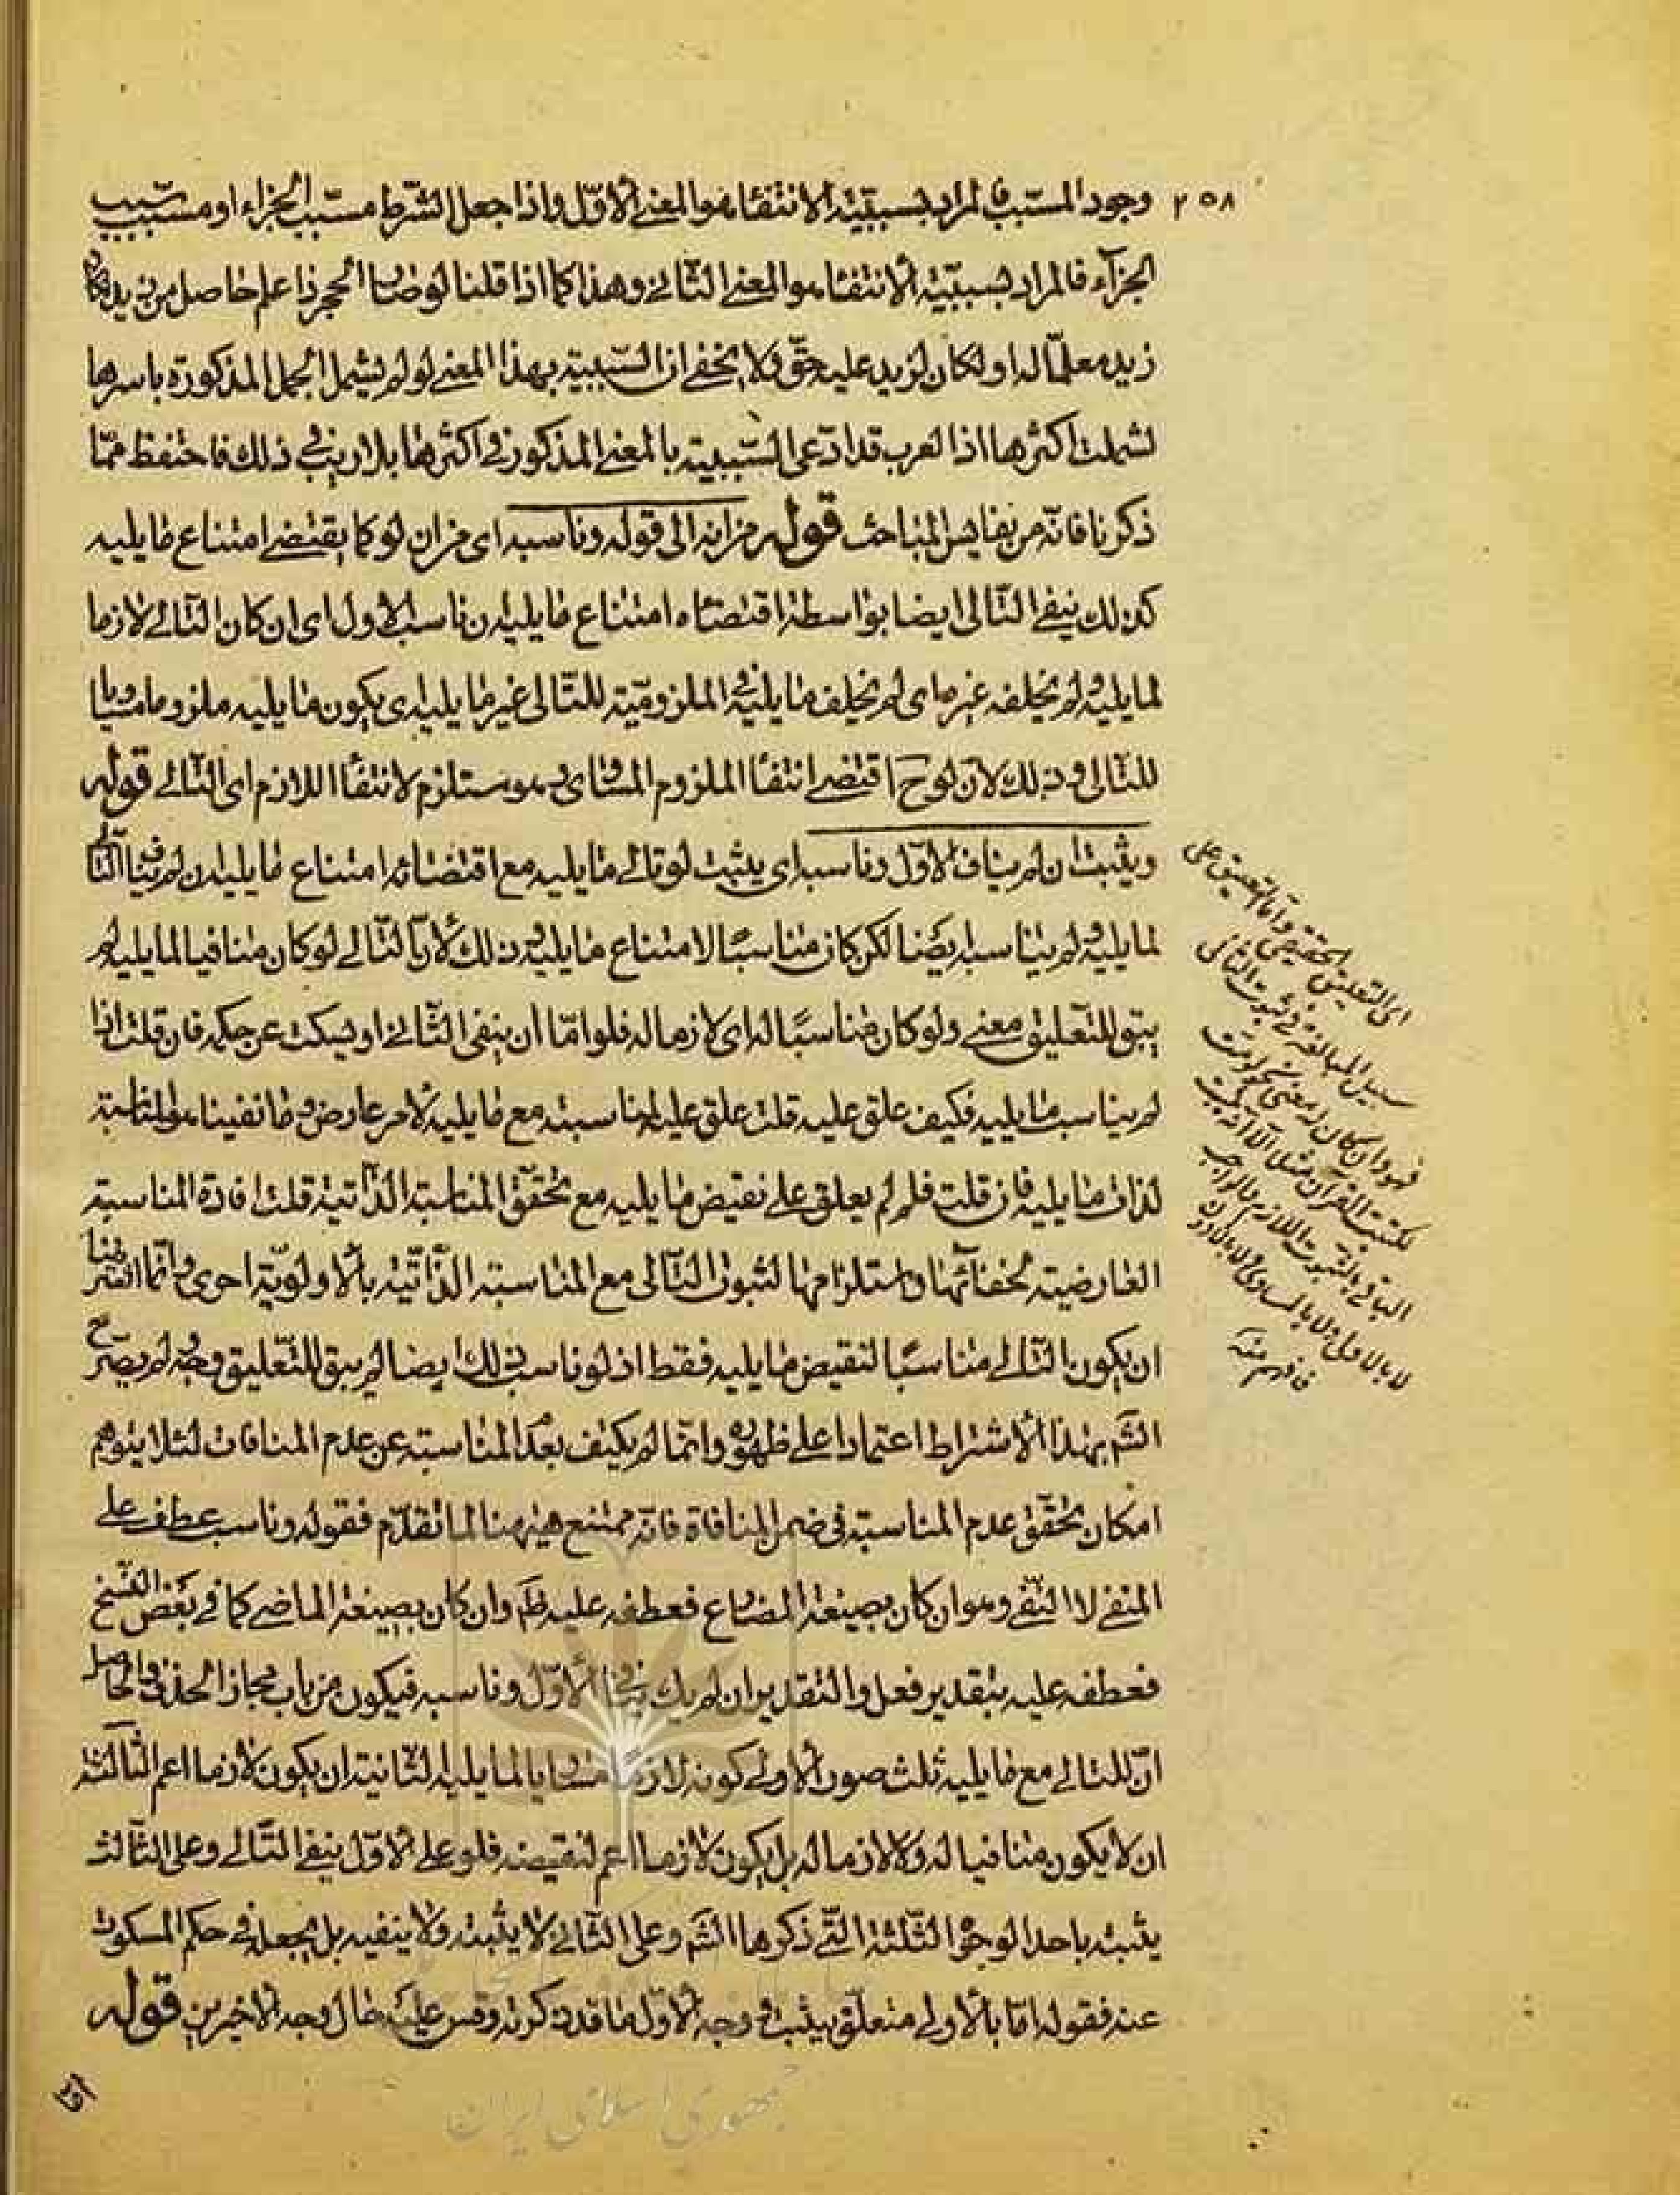 ٢٥٨ وجود المسبب فالمراد بسببية الانتفاء هو المعنى الاوّل واذا جعل الشرط مسبّب الجزاء او مسبب سبب
الجزآء فالمراد بسببيّة الانتفاء هو المعنى الثانى وهذا كما اذا قلنا لو صار الحجر ذا علم حاصل من زيد لكان
زيد معلّما له او لكان لزيد عليه حقّ ولا يخفى ان السّببية بهذا المعنى لو لم يشمل الجمل المذكورة باسرها
لشملت اكثرها اذ العرب قد ادّعى السّببية بالمعنى المذكور فى اكثرها بلا ريب فى ذلك فاحتفظ ممّا
ذكرنا فانّه من نفايس المباحث قوله من انه الى قوله وناسبه اى من ان لو كما يقتضى امتناع ما يليه
كذلك ينفى التّالى ايضا بواسطة اقتضاء امتناع ما يليه ان ناسب الاول اى ان كان التّالى لازما
لما يليه ولم يخلفه غيره اى لم يخلف ما يليه فى الملزوميّة للتّالى غير ما يليه اى يكون ما يليه ملزوما مساويا
للتّالى وذلك لان لو ح اقتضى انتفاء الملزوم المساوى وهو مستلزم لانتفاء اللازم اى التّالى قوله
ويثبت ان لم يناف الاوّل وناسبه اى يثبت لو تالى ما يليه مع اقتضائه امتناع ما يليه ان لم يناف التّالى
لما يليه ولم يناسبه ايضا لكن كان مناسبًا لامتناع ما يليه وذلك لأن التّالى لو كان منافيا لما يليه لم
يبق للتّعليق معنى ولو كان مناسبًا له اى لازما له فلو امّا ان ينفى الثّانى او يسكت عن حكمه فان قلت اذا
لم يناسب ما يليه فكيف علق عليه قلت علق عليه لمناسبته مع ما يليه لأمر عارض وما نفينا هو المناسبة
لذات ما يليه فان قلت فلم لم يعلق على نقيض ما يليه مع تحقّق المناسبة الذّاتية قلت افادة المناسبة
العارضيّة لخفائها واستلزامها لثبوت التّالى مع المناسبة الذّاتيّة بالأولويّة احرى وانّما اشترطنا
ان يكون التّالى مناسبًا لنقيض ما يليه فقط اذ لو ناسب ذلك ايضا لم يبق للتّعليق وجه ولم يصرّح
الشّم بهذا الاشتراط اعتمادا على ظهوره وانّما لم يكتف بعدم المناسبة عن عدم المنافات لئلا يتوهم
امكان تحقّق عدم المناسبة فى ضمن المنافاة فانّه ممتنع هيهنا لما تقدّم فقوله وناسب عطف على
المنفى لا النّفى وهو ان كان بصيغة المضارع فعطفه عليه ظم وان كان بصيغة الماضى كما فى بعض النّسخ
فعطفه عليه بتقدير فعل والتقدير ان لم يك ينافى الأوّل وناسبه فيكون من باب مجاز الحذف والحاصل
انّ للتالى مع ما يليه ثلث صور الأولى كونه لازما مساويا لما يليه الثّانية ان يكون لازما اعم الثّالثة
ان لا يكون منافيا له ولا لازما له بل يكون لازما اعم لنقيضه فلو على الاوّل ينفى التّالى وعلى الثّالث
يثبته باحد الوجوه الثّلثة التّى ذكرها الشّم وعلى الثّانى لا يثبته ولا ينفيه بل يجعله فى حكم المسكوت
عنه فقوله امّا بالأولى متعلّق بيثبت ووجه الأوّل ما قد ذكرته وقس عليه حال وجه الاخيرين قوله
اى التعليق الحقيقى واما التعليق على
سبيل المبالغة فى ثبوت التالى
فهو وان كان له معنى
فافهم منه
جمهورى اسلامى ايران